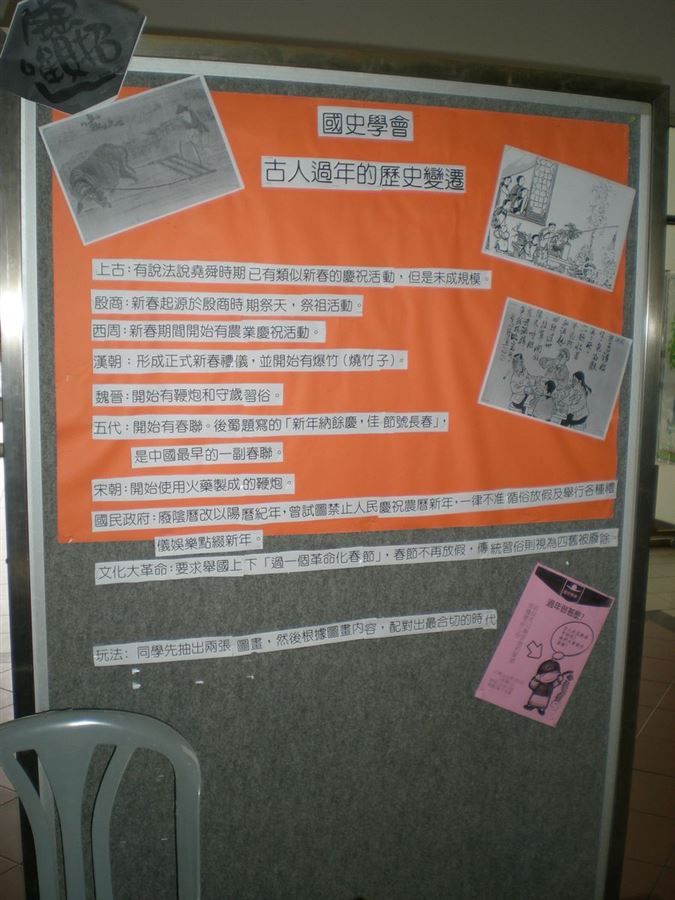 國史學會
古人過年的歷史變遷
上古：有說法說堯舜時期已有類似新春的慶祝活動，但是未成規模。
殷商：新春起源於殷商時期祭天，祭祖活動。
西周：新春期間開始有農業慶祝活動。
漢朝：形成正式新春禮儀，並開始有爆竹（燒竹子）。
魏晉：開始有鞭炮和守歲習俗。
五代：開始有春聯。後蜀題寫的「新年納餘慶，佳節號長春」，
是中國最早的一副春聯。
宋朝：開始使用火藥製成的鞭炮。
國民政府：廢陰曆改以陽曆紀年，曾試圖禁止人民慶祝農曆新年，一律不准循俗放假及舉行各種禮
儀娛樂點綴新年。
文化大革命：要求舉國上下「過一個革命化春節」，春節不再放假，傳統習俗則視為四舊被廢除。
玩法：同學先抽出兩張圖畫，然後根據圖畫內容，配對出最合切的時代
過年做甚麼？